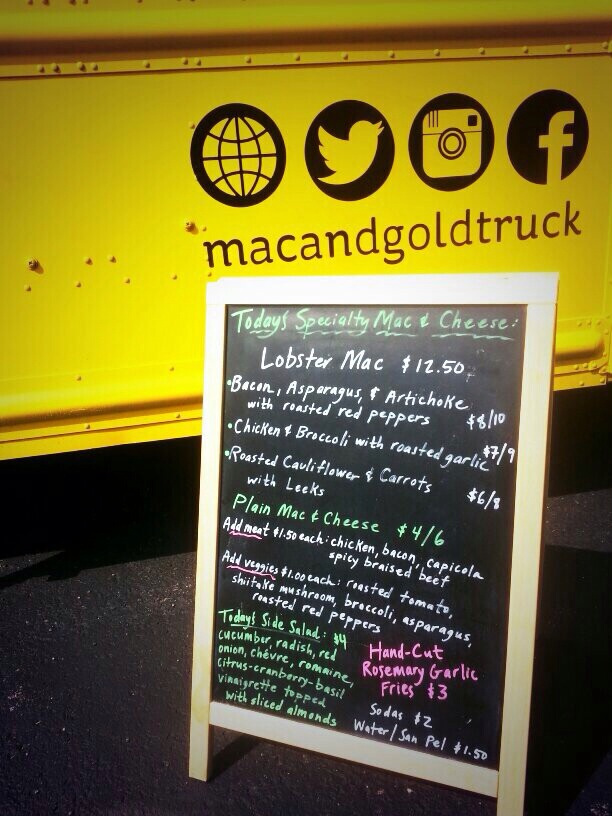 macandgoldtruck
Today's Specialty Mac & Cheese:
Lobster Mac $12.50
• Bacon, Asparagus, & Artichoke
with roasted red peppers $8/10
• Chicken & Broccoli with roasted garlic $7/9
• Roasted Cauliflower & Carrots
with Leeks $6/8
Plain Mac & Cheese $4/6
Add meat $1.50 each: chicken, bacon, capicola
spicy braised beef
Add veggies $1.00 each: roasted tomato,
shiitake mushroom, broccoli, asparagus,
roasted red peppers
Today's Side Salad: $4
cucumber, radish, red
onion, chévre, romaine,
citrus-cranberry-basil
vinaigrette topped
with sliced almonds
Hand-Cut
Rosemary Garlic
Fries $3
Sodas $2
Water/San Pel $1.50